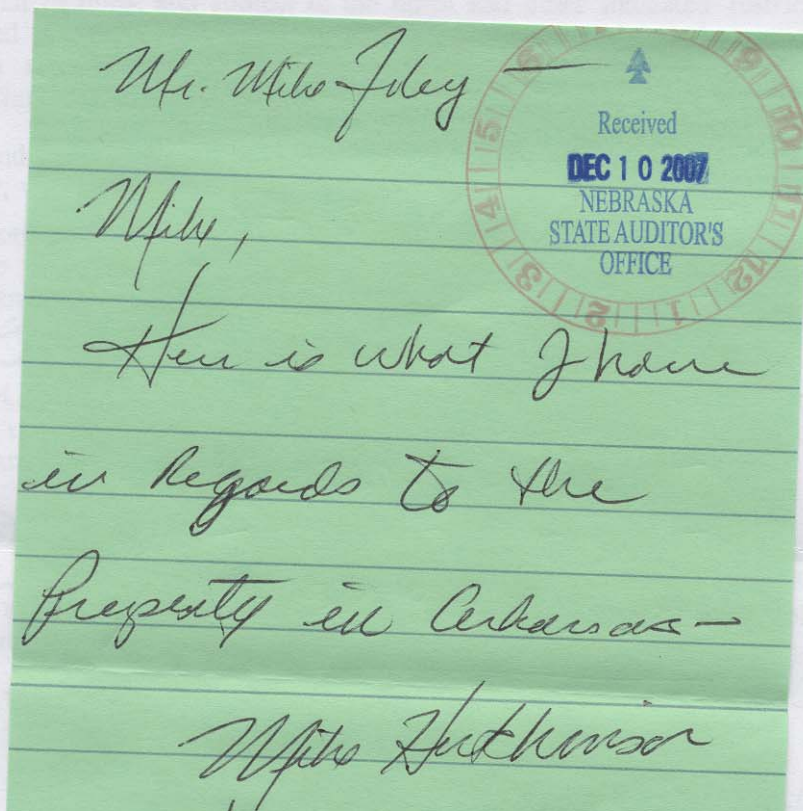 Mr. Mike Foley —
Received
DEC 10 2007
NEBRASKA
STATE AUDITOR'S
OFFICE
Mike,
Here is what I have
in Regards to the
Property in Arkansas—
Mike Hutchinson